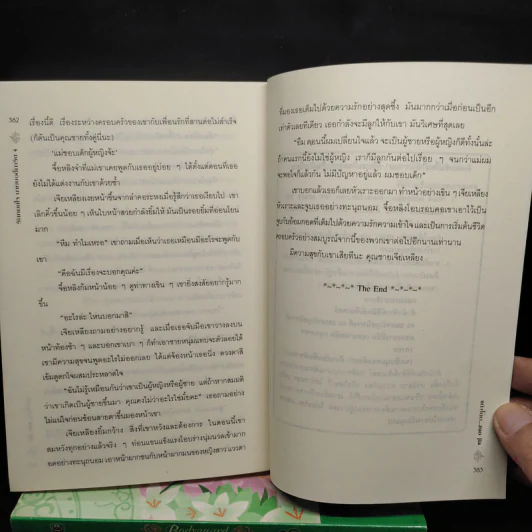 362
เรื่องนี้ดี เรื่องระหว่างครอบครัวของเขากับเพื่อนรักที่สานต่อไม่สำเร็จ
(ก็ดันเป็นคุณชายทั้งคู่นี่นะ)
'แม่ชอบเด็กผู้หญิงจ้ะ'
จื้อหลิงจำที่แม่เขาเคยพูดกับเธออยู่บ่อย ๆ ได้ตั้งแต่ตอนที่เธอ
ยังไม่ได้แต่งงานกับเขาด้วยซ้ำ
เจียเหลียงเงยหน้าขึ้นจากลำคอระหงเมื่อรู้สึกว่าเธอเงียบไป เขา
เลิกคิ้วขึ้นน้อย ๆ เห็นใบหน้าสวยกำลังยิ้มให้ มันเป็นรอยยิ้มที่อ่อนโยน
มาก
"หืม ทำไมเหรอ" เขาถามเมื่อเห็นว่าเธอเหมือนมีอะไรจะพูดกับ
เขา
"คือฉันมีเรื่องจะบอกคุณค่ะ"
จื้อหลิงก้มหน้าน้อย ๆ ดูท่าทางเขิน ๆ เขายิ่งสงสัยอยากรู้มาก
ขึ้น
"อะไรล่ะ ไหนบอกมาสิ"
เจียเหลียงถามอย่างอยากรู้ และเมื่อเธอจับมือเขาวางลงบน
หน้าท้องช้า ๆ และบอกเขาเบา ๆ ก็ทำเอาชายหนุ่มแทบจะตัวลอยได้
เขามีความสุขจนพูดอะไรไม่ออกเลย ได้แต่จ้องหน้าเธอนิ่ง ดวงตาสี
เข้มดูตกใจผสมประหลาดใจ
"ฉันไม่รู้เหมือนกันว่าเขาเป็นผู้หญิงหรือผู้ชาย แต่ถ้าหากสมมติ
ว่าเขาเกิดเป็นผู้ชายขึ้นมา คุณคงไม่ว่าอะไรใช่มั้ยคะ" เธอถามอย่าง
ไม่แน่ใจก่อนช้อนสายตาขึ้นมองหน้าเขา
เจียเหลียงยิ้มกว้าง สิ่งที่เขาหวังและต้องการ ในตอนนี้เขา
สมหวังทุกอย่างแล้วจริง ๆ ท่อนแขนแข็งแรงโอบร่างนุ่มนวลเข้ามา
กอดอย่างทะนุถนอม เอาหน้าผากชนกับหน้าผากมนของหญิงสาว แววตา
ที่มองเธอเต็มไปด้วยความรักอย่างสุดซึ้ง มันมากกว่าเมื่อก่อนเป็นอีก
เท่าตัวเลยทีเดียว เธอกำลังจะมีลูกให้กับเขา มันวิเศษที่สุดเลย
"อืม ตอนนี้ผมเปลี่ยนใจแล้ว จะเป็นผู้ชายหรือผู้หญิงก็ดีทั้งนั้นล่ะ
ถ้าคนแรกนี้ยังไม่ใช่ผู้หญิง เราก็มีลูกกันต่อไปเรื่อย ๆ จนกว่าแม่ผม
จะพอใจก็แล้วกัน ไม่มีปัญหาอยู่แล้ว ผมชอบเด็ก"
เขาบอกแล้วเธอก็เลยหัวเราะออกมา ทำหน้าอย่างเขิน ๆ เจียเหลียง
หัวเราะและจูบเธออย่างทะนุถนอม จื้อหลิงโอบรอบคอเขาเอาไว้เป็น
จูบกันอ้อมกอดที่เต็มไปด้วยความรักความเข้าใจ และเป็นการเริ่มต้นชีวิต
ครอบครัวอย่างสมบูรณ์จากนี้ของพวกเขาต่อไปอีกนานเท่านาน
มีความสุขกับเขาเสียทีนะ คุณชายเจียเหลียง
*~*~*~* The End *~*~*~*
383
Bodyguard